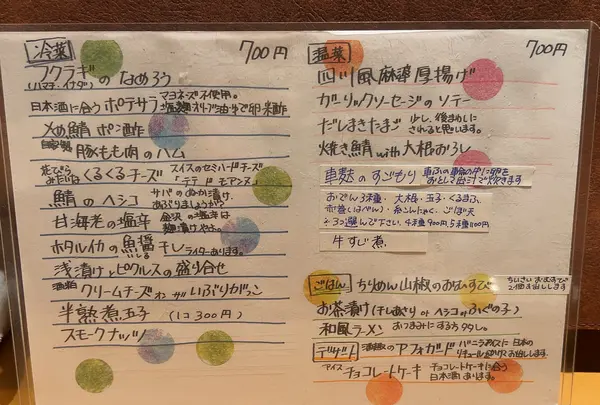 冷菜 700円
フクラギのなめろう
(ハマチ・イナダ)
日本酒に合うポテサラ マヨネーズ不使用。
塩麹 オリーブ油 牛乳 卵 米酢
〆め鯖ポン酢
自家製 豚もも肉のハム
花びらみたいな くるくるチーズ スイスのセミハードチーズ
「テテドモアンヌ」
鯖のヘシコ サバのぬか漬け。
あぶりましょうか?
甘海老の塩辛 金沢の塩辛は
ホタルイカの魚醤干し ライターあります。
いしる
浅漬けとピクルスの盛り合せ
クリームチーズ いぶりがっこ
半熟煮玉子 (1コ300円)
スモークナッツ
温菜 700円
四川風麻婆厚揚げ
ガーリックソーセージのソテー
だしまきたまご 少し、後まわしに
されると思います。
焼き鯖with大根おろし
車麩のすごもり 車ふの車輪の中に卵を
おとして出汁で炊きます
おでん3種・大根・玉子・くるまふ・
赤巻(はべん)・糸こんにゃく・ごぼ天
3つ選んで下さい。4種900円 5種1100円
牛すじ煮
ごはん ちりめん山椒のおむすび ちいさいおむすび
2個お出しします
お茶漬け(梅しぐれ or ヘシコ or ふぐの子)
和風ラーメン おつまみにするろタタシ。
デザート 酒粕のアフォガード バニラアイスに日本の
リキュールをかけてお出しします。
アイス チョコレートケーキ チョコレートケーキに合う
日本酒あります。